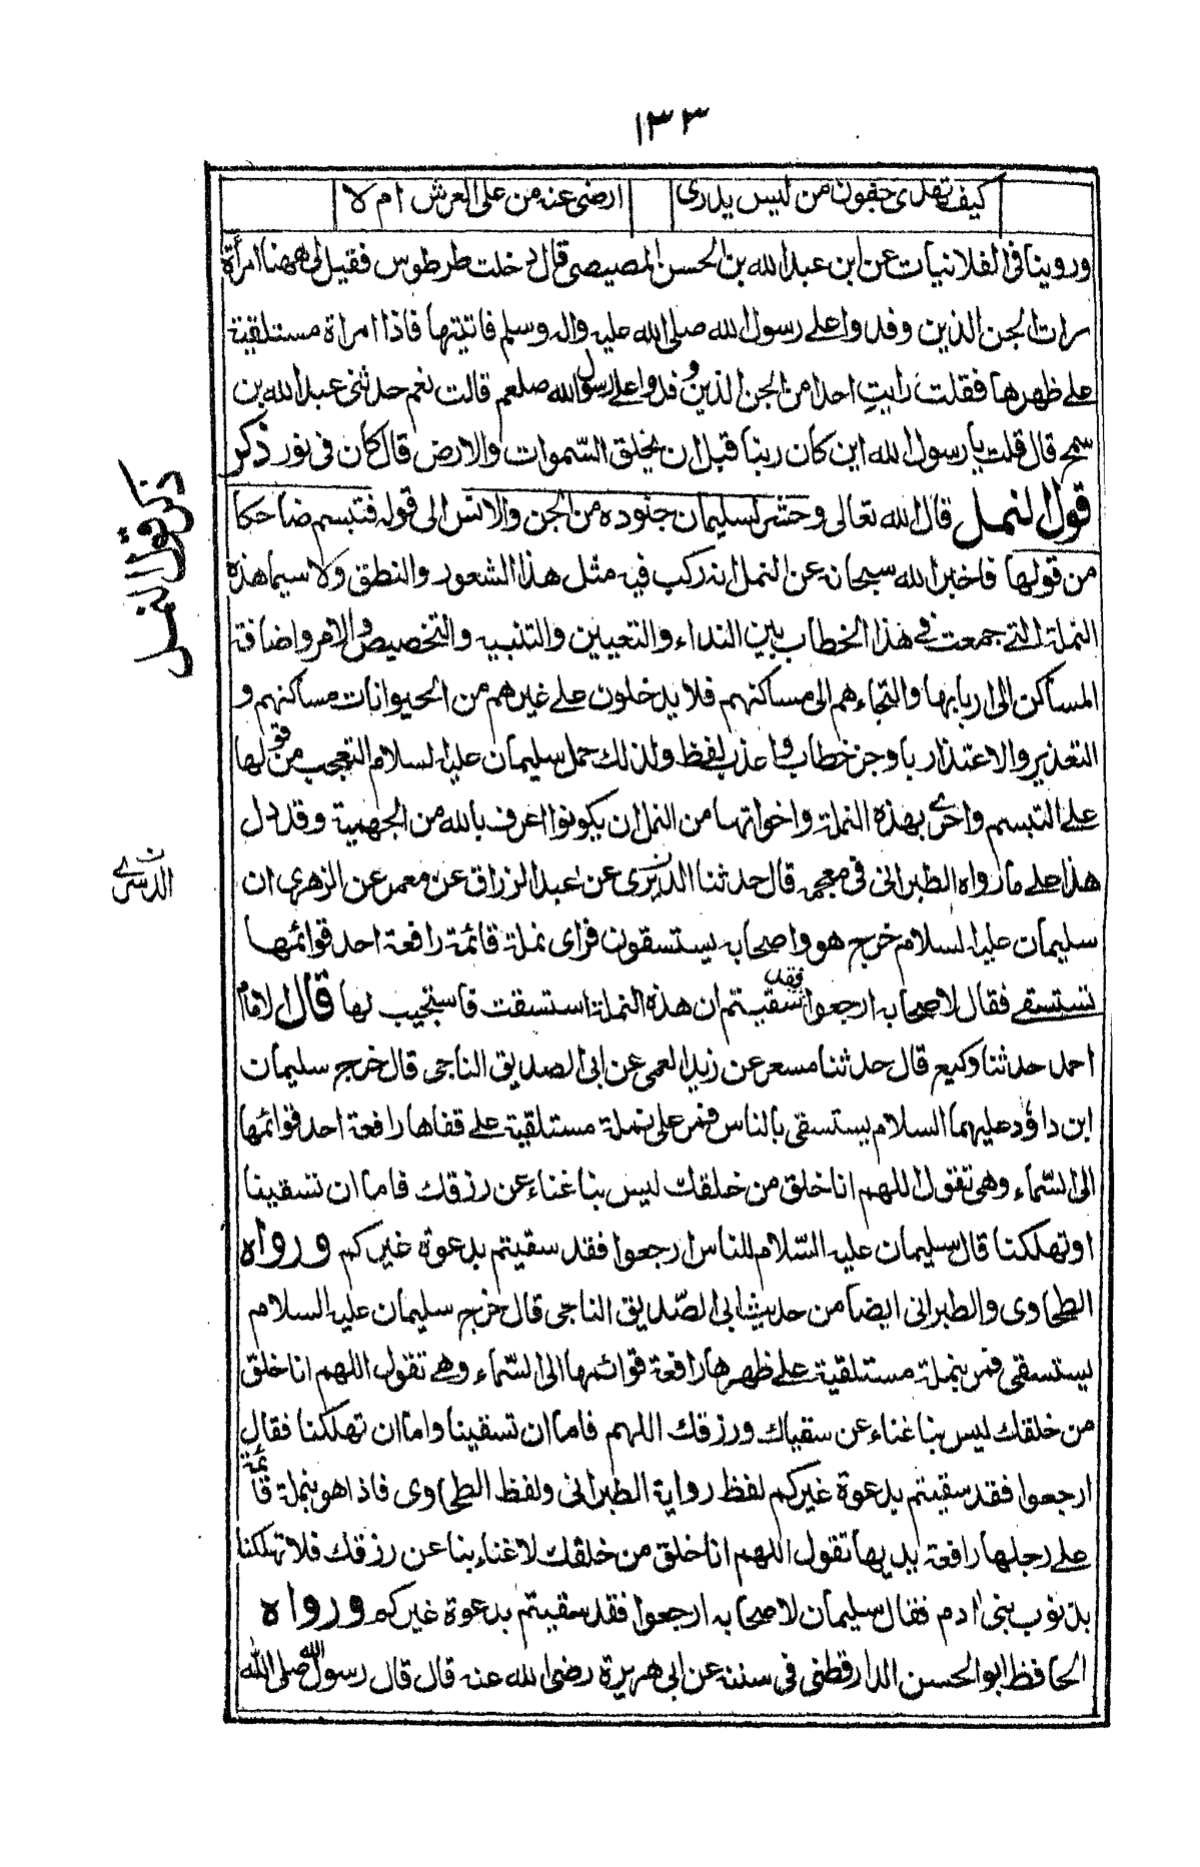 ١٣٣
كيف تهدى جفون من ليس يدرى ارضى عنه من على العرش ام لا
وروينا فى الغلانيات عن ابن عبد الله بن الحسن المصيصى قال دخلت طرطوس فقيل لى ههنا امرأة
رات الجن الذين وفدوا على رسول الله صلى الله عليه واله وسلم فاتيتها فاذا امراة مستلقية
على ظهرها فقلت رايتِ احدا من الجن الذين وفدوا على رسول الله صلعم قالت نعم حدثنى عبد الله بن
سمح قال قلت يا رسول الله اين كان ربنا قبل ان يخلق السّموات والارض قال كان فى نور ذكر
قول النمل قال الله تعالى وحشر لسليمان جنوده من الجن والانس الى قوله فتبسم ضاحكا
من قولها فاخبر الله سبحانه عن النمل انه ركب فيه مثل هذا الشعور والنطق ولا سيما هذه
النملة التے جمعت فے هذا الخطاب بين النداء والتعيين والتنبيه والتخصيص والامر واضافة
المساكن الى اربابها والتجاءهم الى مساكنهم فلا يدخلون على غيرهم من الحيوانات مساكنهم و
التعذير والاعتذار باوجز خطاب واعذب لفظ ولذلك حمل سليمان عليه السلام التعجب من قولها
على التبسم واحرى بهذه النملة واخواتها من النمل ان يكونوا اعرف بالله من الجهمية وقد دل
هذا على ما رواه الطبرانى فى معجمه قال حدثنا الدبرى عن عبد الرزاق عن معمر عن الزهرى ان
سليمان عليه السلام خرج هو واصحابه يستسقون فراى نملة قائمة رافعة احد قوائمها
تستسقى فقال لاصحابه ارجعوا فقد سقيتم ان هذه النملة استسقت فاستجيب لها قال الامام
احمد حدثنا وكيع قال حدثنا مسعر عن زيد العمى عن ابى الصديق الناجى قال خرج سليمان
ابن داؤد عليهما السلام يستسقى بالناس فمر على نملة مستلقية على قفاها رافعة احد قوائمها
الى السّماء وهى تقول اللهم انا خلق من خلقك ليس بنا غناء عن رزقك فاما ان تسقينا
او تهلكنا قال سليمان عليه السّلام للناس ارجعوا فقد سقيتم بدعوة غيركم ورواه
الطحاوى والطبرانى ايضا من حديث ابى الصّديق الناجى قال خرج سليمان عليه السلام
يستسقى فمر بنملة مستلقية على ظهرها رافعة قوائمها الى السّماء وهے تقول اللهم انا خلق
من خلقك ليس بنا غناء عن سقياك ورزقك اللهم فاما ان تسقينا واما ان تهلكنا فقال
ارجعوا فقد سقيتم بدعوة غيركم لفظ رواية الطبرانى ولفظ الطحاوى فاذا هو بنملة قائمة
على رجلها رافعة يديها تقول اللهم انا خلق من خلقك لا غناء بنا عن رزقك فلا تهلكنا
بذنوب بنى ادم فقال سليمان لاصحابه ارجعوا فقد سقيتم بدعوة غيركم ورواه
الحافظ ابو الحسن الدارقطنى فى سننه عن ابى هريرة رضى الله عنه قال قال رسول الله صلى الله
ذكر قول النمل